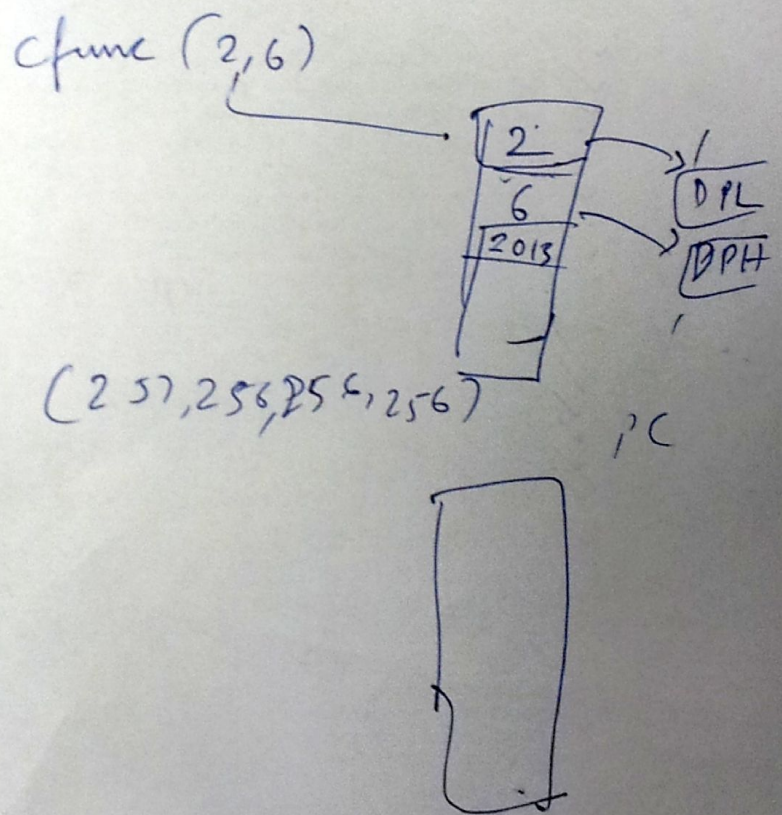 cfunc (2,6)
2
DPL
6
2013
DPH
(257,256,256,256)
PC